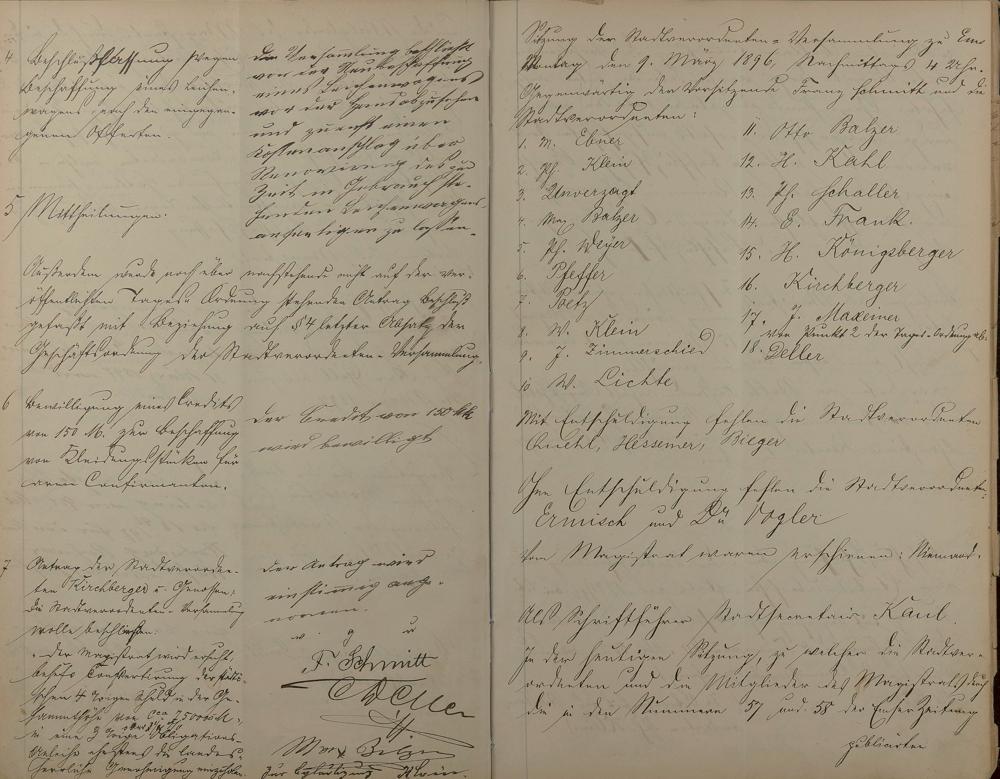 4 Beschlußfassung wegen
Beschaffung eines Leichen-
wagens nach den eingegan-
genen Offerten.
Die Versammlung beschließt
von der Neubeschaffung
eines Leichenwagens
vor der Hand abzusehen
und zuerst einen
Kostenanschlag über
Renovierung des zur
Zeit in Gebrauch ste-
henden Leichenwagens
anfertigen zu lassen.
5 Mittheilungen.
Außerdem wurde noch über nachstehende nicht auf der ver-
öffentlichten Tages-Ordnung stehenden Antrag Beschluß
gefaßt mit Beziehung auf § 4 letzter Absatz der
Geschäftsordnung der Stadtverordneten-Versammlung.
6 Bewilligung eines Credits
von 150 M. zur Beschaffung
von Kleidungsstücken für
arme Confirmanten.
Der Credit von 150 M
wird bewilligt
7 Antrag der Stadtverordne-
ten Kirchberger u. Genossen:
Die Stadtverordneten-Versammlung
wolle beschließen:
"Der Magistrat wird ersucht,
behufs Convertierung der städti-
schen 4 %igen Schuld in der Ge-
sammthöhe von
in eine 3 %ige Obligations-
Anleihe ehestens die landes-
herrliche Genehmigung einzuholen.
Der Antrag wird
einstimmig ange-
nommen.
v. g. u.
F. Schmitt
Deller
Max Balzer
Zur Beglaubigung Klein.
Sitzung der Stadtverordneten-Versammlung zu Ems
Montag den 9. März 1896, Nachmittags 4 Uhr.
Gegenwärtig der Vorsitzende Franz Schmitt und die
Stadtverordneten:
1. M. Ebner
2. Ph. Klein
3. Unverzagt
4. Max Balzer
5. Ph. Weyer
6. Pfeffer
7. Betz
8. W. Klein
9. J. Zimmerschied
10 W. Lichte
11. Otto Balzer
12. H. Kahl
13. Ph. Schaller
14. E. Frank.
15. H. Königsberger
16. Kirchberger
17. J. Maxeiner
von Punkt 2 der Tages-Ordnung ab.
18. Deller
Mit Entschuldigung fehlen die Stadtverordneten
Hessemer, Bieger
Ohne Entschuldigung fehlen die Stadtverordneten
Ermisch und Dr. Vogler
Vom Magistrat waren erschienen: Niemand.
Als Schriftführer Stadtsecretair Kaul.
In der heutigen Sitzung, zu welcher die Stadtver-
ordneten und die Mitglieder des Magistrats durch
die in den Nummern 57 und 58 der Emser Zeitung
publicirte